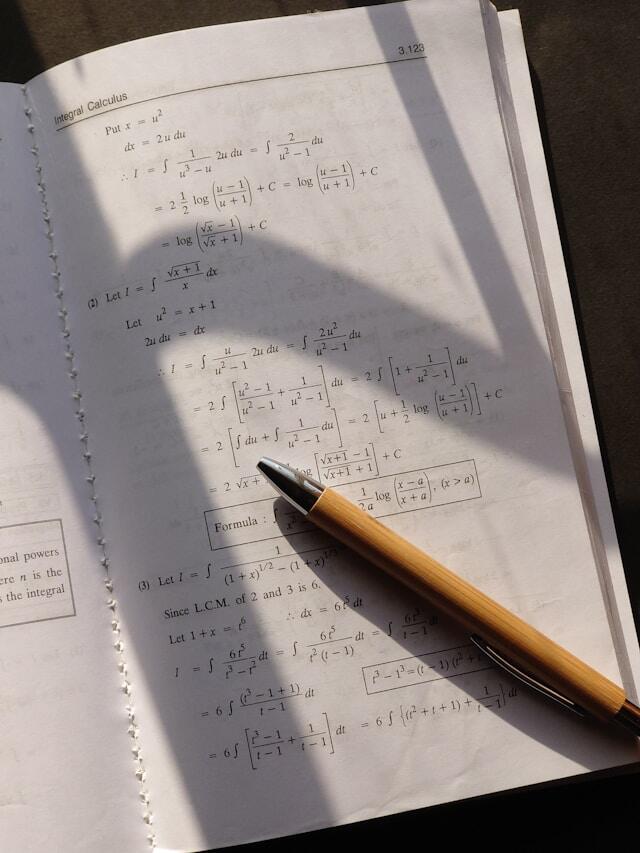 Integral Calculus 3.123
Put x = u²
dx = 2u du
∴ I = ∫ 1/(u³ − u) 2u du = ∫ 2/(u² − 1) du
= 2 1/2 log ((u − 1)/(u + 1)) + C = log ((u − 1)/(u + 1)) + C
= log ((√x − 1)/(√x + 1)) + C
(2) Let I = ∫ √(x + 1)/x dx
Let u² = x + 1
2u du = dx
∴ I = ∫ u/(u² − 1) 2u du = ∫ 2u²/(u² − 1) du
= 2 ∫ [(u² − 1)/(u² − 1) + 1/(u² − 1)] du = 2 ∫ [1 + 1/(u² − 1)] du
= 2 [∫ du + ∫ 1/(u² − 1) du] = 2 [u + 1/2 log ((u − 1)/(u + 1))] + C
= 2 √x + log [(√x+1 − 1)/(√x+1 + 1)] + C
Formula : ∫ 1/2a log ((x − a)/(x + a)), (x > a)
(3) Let I = ∫ 1/((1 + x)^1/2 − (1 + x)^1/3
Since L.C.M. of 2 and 3 is 6.
Let 1 + x = t⁶ ∴ dx = 6t⁵ dt
I = ∫ 6t⁵/(t³ − t²) dt = ∫ 6t⁵/(t² (t − 1)) dt = ∫ 6t³/(t − 1) dt
= 6 ∫ (t³ − 1 + 1)/(t − 1) dt
t³ − 1³ = (t − 1) (t² + t
= 6 ∫ [(t³ − 1)/(t − 1) + 1/(t − 1)] dt = 6 ∫ {(t² + t + 1) + 1/(t − 1)} dt
onal powers
ere n is the
s the integral